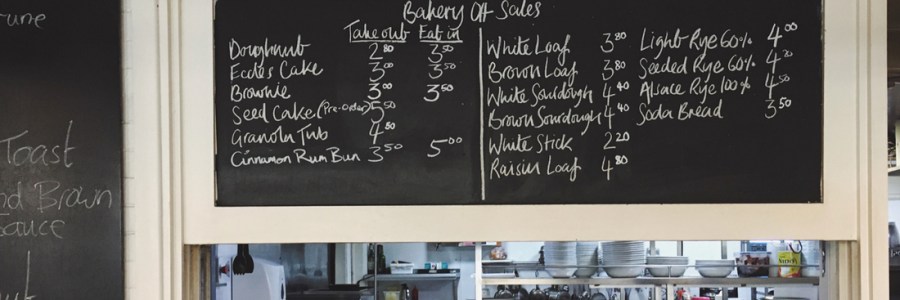 Toast
Brown
Sauce
Bakery Off Sales
Take out Eat in
Doughnut 2.80 3.50
Eccles Cake 3.00 3.50
Brownie 3.00 3.50
Seed Cake (Pre-order) 5.50
Granola Tub 4.80
Cinnamon Rum Bun 3.50 5.00
White Loaf 3.80
Brown Loaf 3.80
White Sourdough 4.40
Brown Sourdough 4.40
White Stick 2.20
Raisin Loaf 4.80
Light Rye 60% 4.00
Seeded Rye 60% 4.20
Alsace Rye 100% 4.50
Soda Bread 3.50